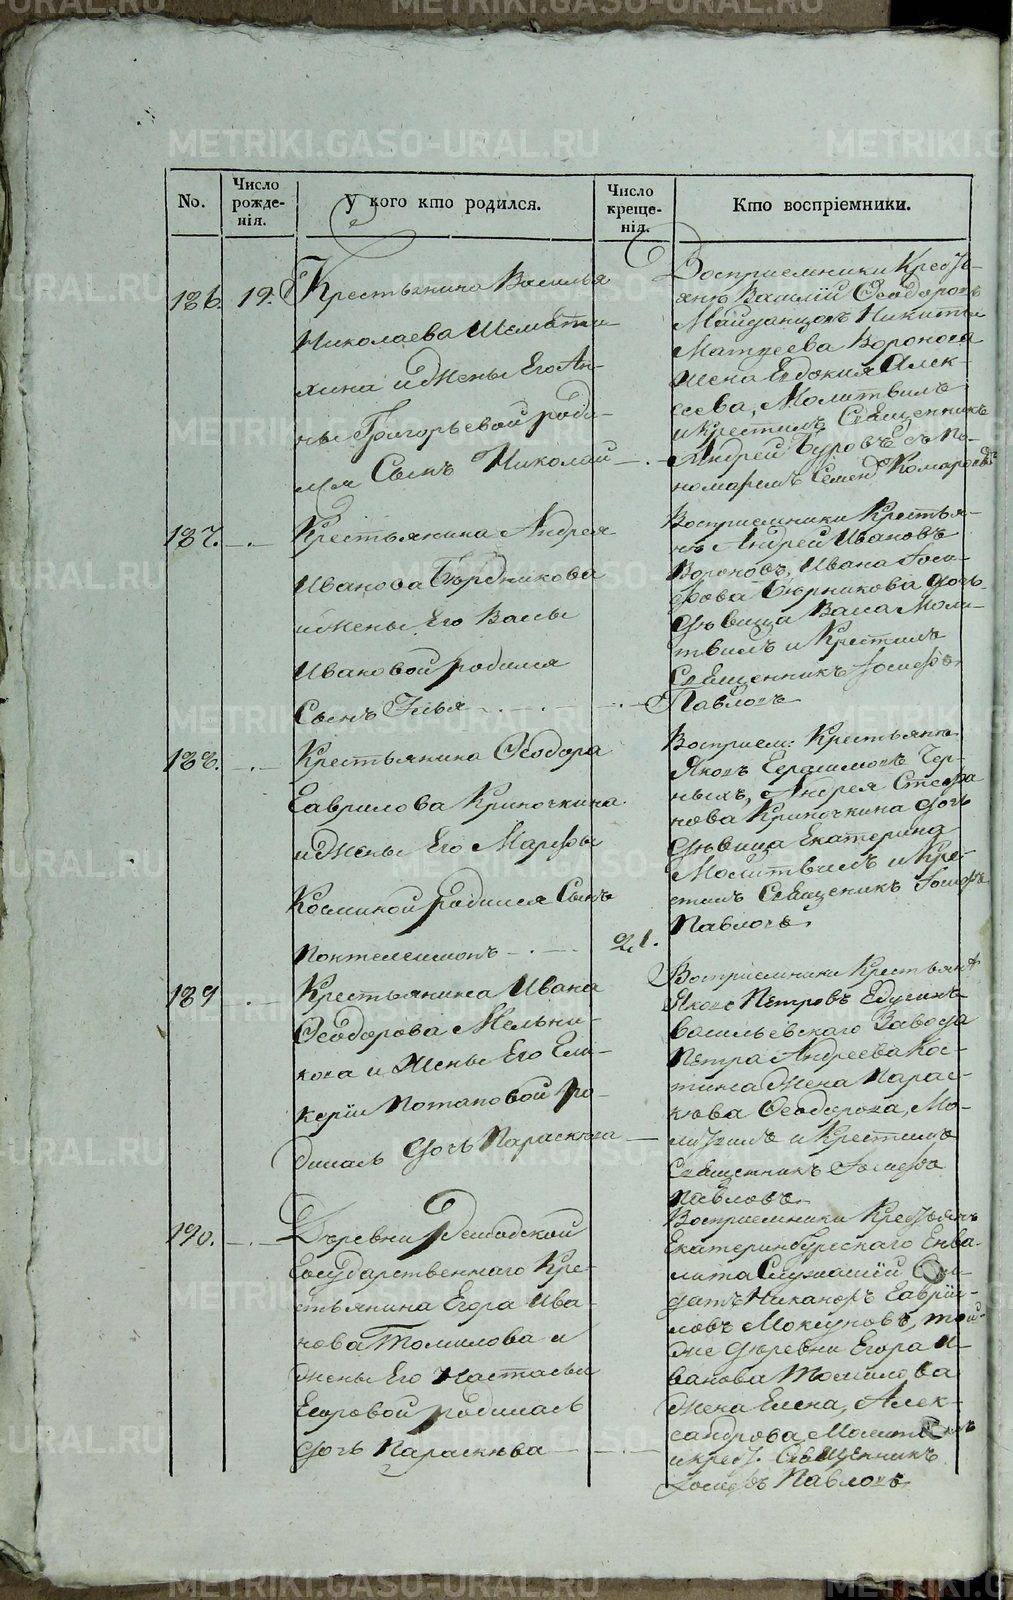 METRIKI.GASO-URAL.RU
No.
Число рожде-нія.
У кого кто родился.
Число креще-нія.
Кто воспріемники.
186. 19.
Крестьянина Василья
Николаева
хина и жены Его Ан-
ны Григорьевой роди-
лся Сынъ Николай
Восприемники Крестья-
яне Василій Ѳеодоровъ
Майданцовъ Никиты
Матѳеева Воронова
жена Евдокия Алек-
сеева, Молитвилъ
и крестилъ Священникъ
Андрей Буровъ съ по-
номаремъ Комаровъ
187.
Крестьянина Андрея
Иванова Бердникова
и жены Его Вассы
Ивановой родился
Сынъ Илья
Восприемники Крестья-
не Андрей Ивановъ
Вороновъ, Ивана Іоси-
фова дочь
дѣвица Васса Моли-
твилъ и Крестилъ
Священникъ Іосифъ
Павловъ
188.
Крестьянина Ѳеодора
Гаврилова Криночкина
и жены Его Марфы
Козминой родился Сынъ
Пантелеимонъ
21.
Восприем: Крестьяне
Яковъ Герасимовъ Чер-
ныхъ, Андрея Стефа
нова Криночкина дочь
дѣвица Екатерина
Молитвилъ и Кре-
стилъ Священикъ Іосифъ
Павловъ
189
Крестьянина Ивана
Ѳеодорова Мельни-
кова и Жены Его Гли-
керіи Потаповой ро-
дилась дочь Параскева
Восприемники Крестьяне
Яковъ Петровъ
Васильевскаго Завода
Петра Андреева Кос-
тина жена Парас-
кова Ѳеодорова, Мо-
литвилъ и Крестилъ
Священникъ Іосифъ
Павловъ
190.
Деревни
Государственнаго Кре-
стьянина Егора Ива-
нова Томилова и
жены Его Настасьи
Егоровой родилась
дочь Параскева
Восприемники Крестьянъ
Екатеринбургскаго Инва-
лита Служащій Сол-
датъ Никаноръ Гаври-
ловъ Мокшуновъ, той-
же деревни Егора И-
ванова Томилова
жена Елена, Алек-
сандрова Молитвилъ
и крест. Священникъ
Іосифъ Павловъ